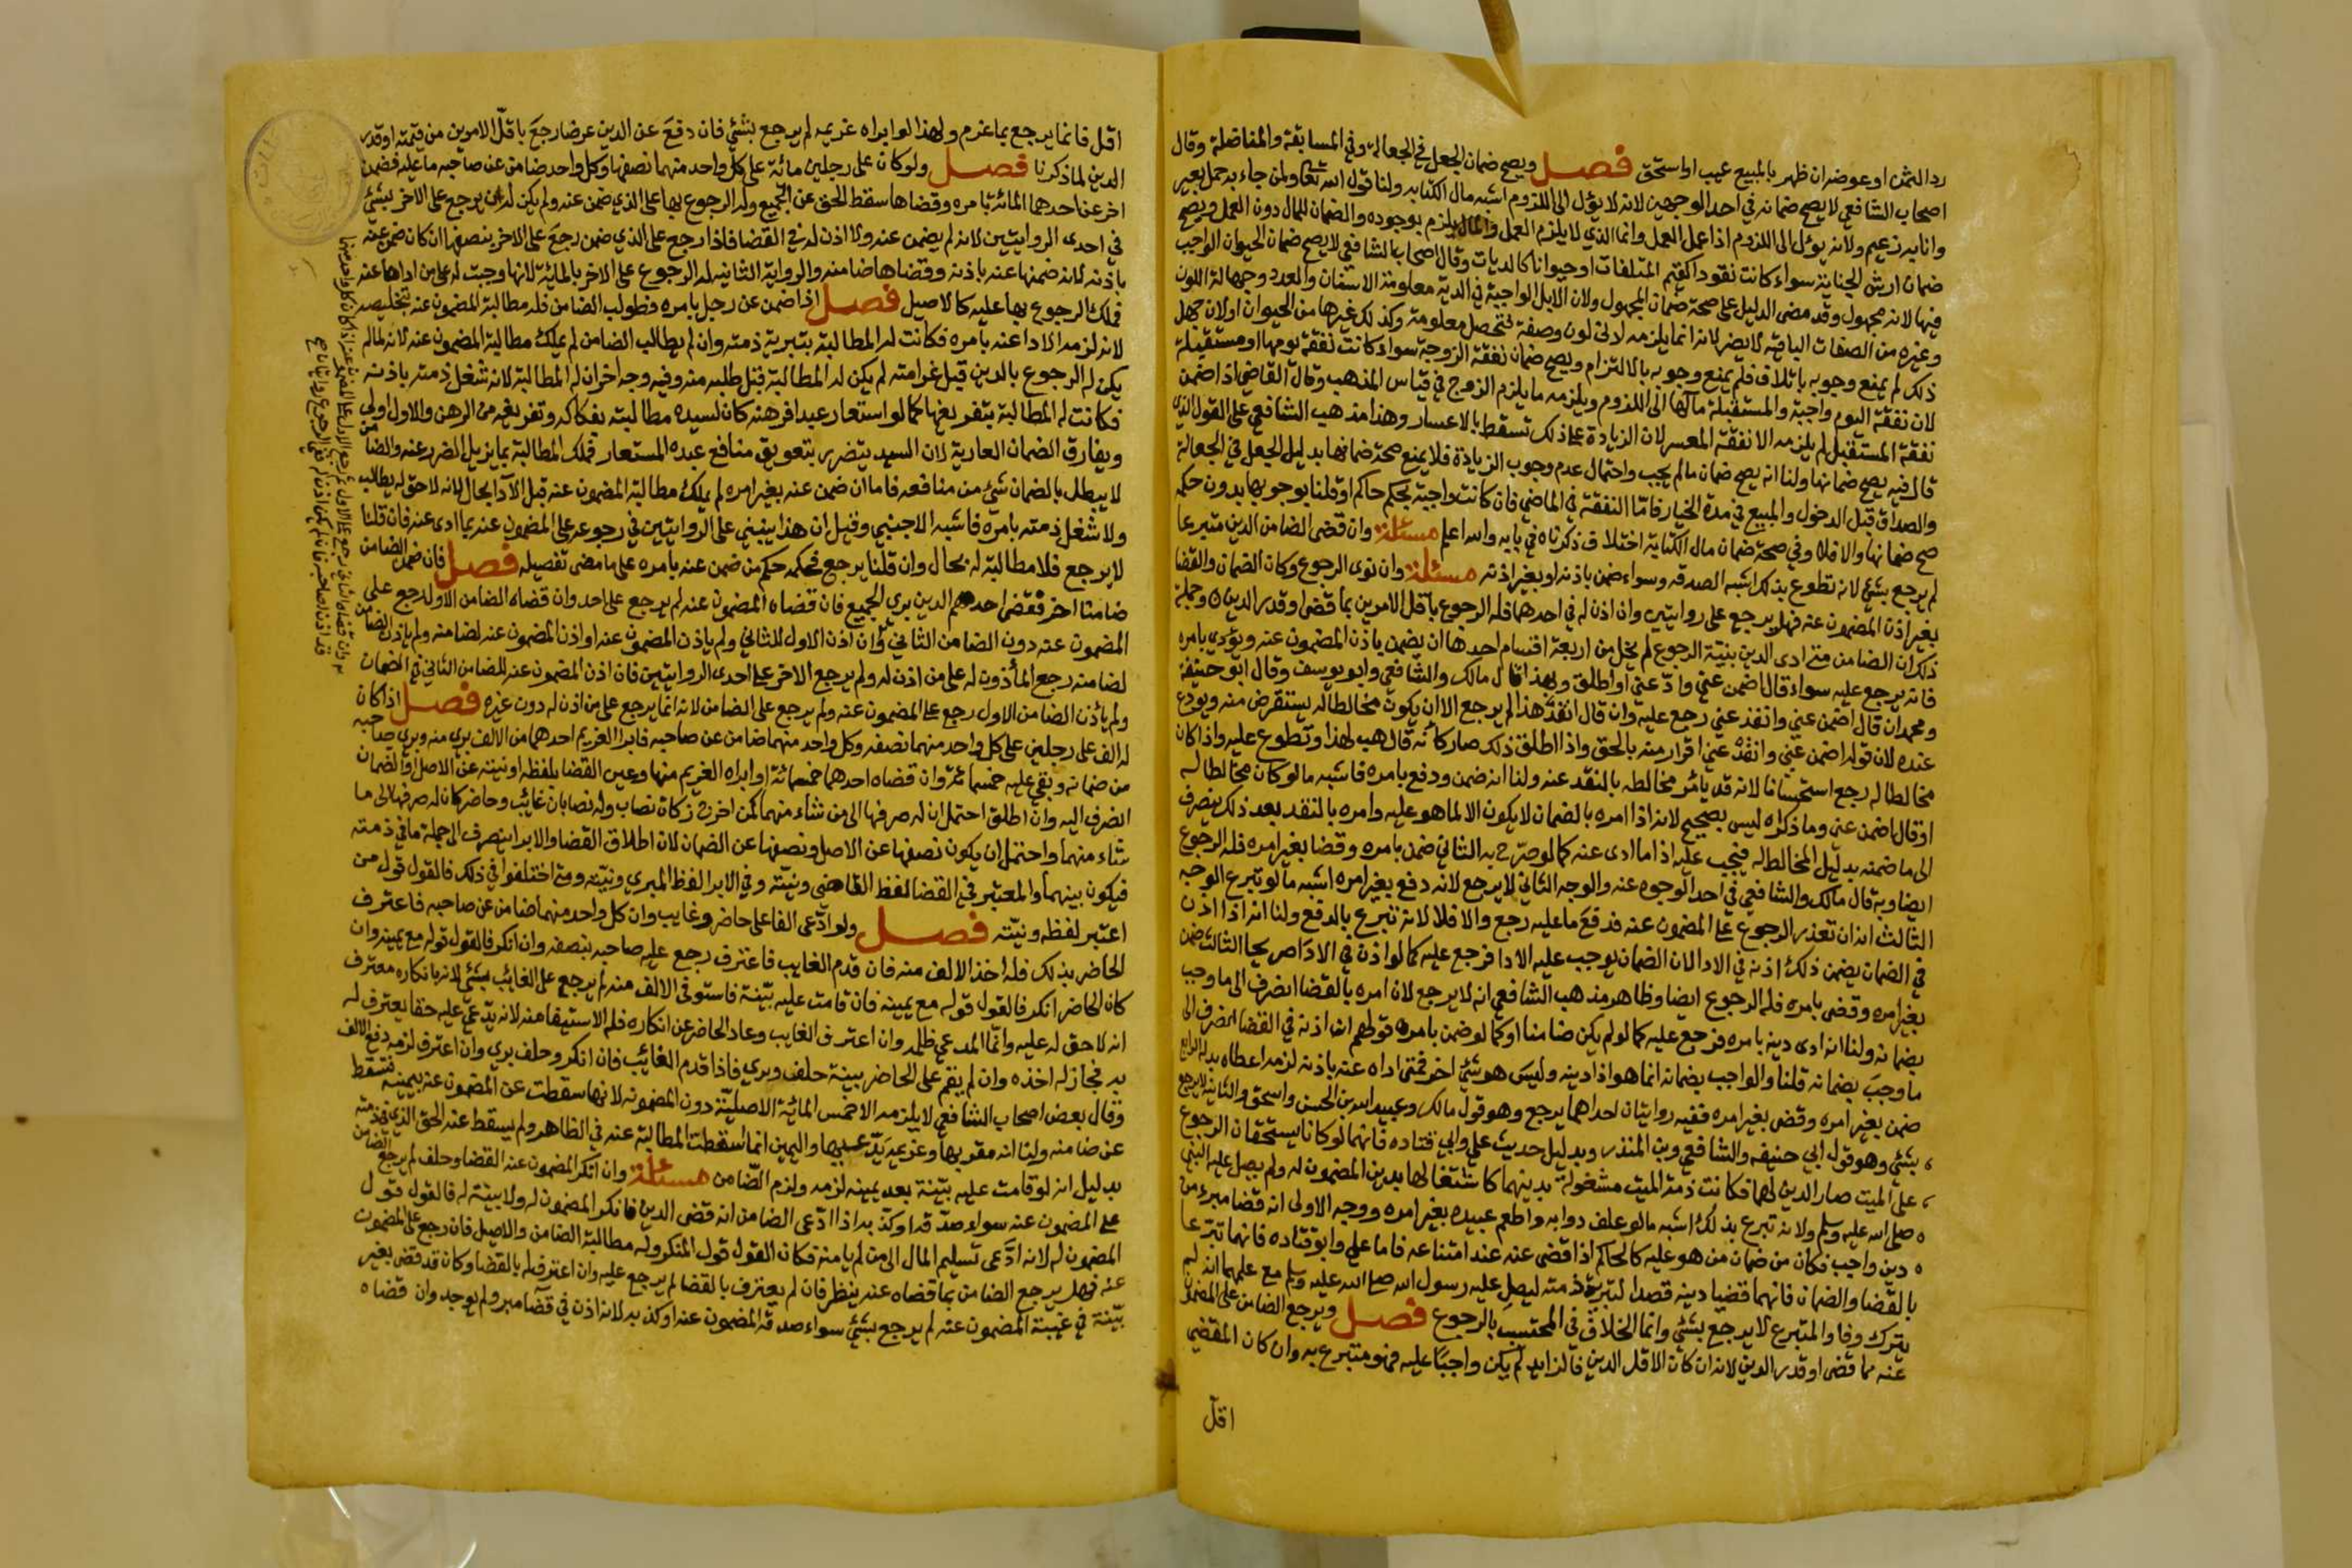 رد الثمن او عوضه ان ظهر بالمبيع عيب او استحق فصل ويصح ضمان الجعل في الجعالة وفي المسابقة والمناضلة وقال
اصحاب الشافعي لا يصح ضمانه في احد الوجهين لانه لا يؤل الى اللزوم اشبه مال الكتابه ولنا قول الله تعالى ولمن جاء به حمل بعير
وانا به زعيم ولانه يؤل الى اللزوم اذا عمل العمل وانما الذي لا يلزم العمل والمال يلزم بوجوده والضمان للمال دون العمل ويصح
ضمان ارش الجناية سواء كانت نقودا كقيم المتلفات او حيوانا كالديات وقال اصحاب الشافعي لا يصح ضمان الحيوان الواجب
فيها لانه مجهول وقد مضى الدليل على صحة ضمان المجهول ولان الابل الواجبة في الدية معلومة الاسنان والعدد وجهالة اللون
وغيره من الصفات الباقيه لا يضر لانه انما يلزمه ادنى لون وصفة فتحصل معلومة وكذلك غيرها من الحيوان اولان جهل
ذلك لم يمنع وجوبه بالاتلاف فلم يمنع وجوبه بالالتزام ويصح ضمان نفقة الزوجة سواء كانت نفقة يومها او مستقبلة
لان نفقة اليوم واجبة والمستقبلة مآلها الى اللزوم ويلزمه ما يلزم الزوج في قياس المذهب وقال القاضي اذا ضمن
نفقة المستقبل لم يلزمه الا نفقة المعسر لان الزيادة على ذلك تسقط بالاعسار وهذا مذهب الشافعي على القول الذي
قال فيه يصح ضمانها ولنا انه يصح ضمان مالم يجب واحتمال عدم وجوب الزيادة فلا يمنع صحة ضمانها بدليل الجعل في الجعالة
والصداق قبل الدخول والمبيع في مدة الخيار فاما النفقة في الماضي فان كانت واجبة بحكم حاكم او قلنا بوجوبها بدون حكمه
صح ضمانها والا فلا وفي صحة ضمان مال الكتابة اختلاف ذكرناه في بابه والله اعلم مسئلة وان قضى الضامن الدين متبرعا
لم يرجع بشئ لانه تطوع بذلك اشبه الصدقه وسواء ضمن باذنه او بغير اذنه مسئلة وان نوى الرجوع وكان الضمان والقضا
بغير اذن المضمون عنه فهل يرجع على روايتين وان اذن له في احدهما فله الرجوع باقل الامرين بما قضى او قدر الدين وجملة
ذلك ان الضامن متى ادى الدين بنية الرجوع لم يخل من اربعة اقسام احدها ان يضمن باذن المضمون عنه ويؤدي بامره
فانه يرجع عليه سواء قال اضمن عني وادّ عني او اطلق وبهذا قال مالك والشافعي وابو يوسف وقال ابو حنيفة
ومحمد ان قال اضمن عني وانقد عني رجع عليه وان قال انقد هذا لم يرجع الا ان يكون مخالطا له يستقرض منه ويودع
عنده لان قوله اضمن عني وانقد عني اقرار منه بالحق واذا اطلق ذلك صار كانه قال هب لهذا او تطوع عليه واذا كان
مخالطا له رجع استحسانا لانه قد يأمر مخالطه بالنقد عنه ولنا انه ضمن ودفع بامره فاشبه مالو كان مخالطا له
او قال اضمن عني وما ذكراه ليس بصحيح لانه اذا امره بالضمان لا يكون الا لما هو عليه وامره بالنقد بعد ذلك ينصرف
الى ما ضمنه بدليل المخالطة فيجب عليه اذا ما ادى عنه كما لو صرح به الثاني ضمن بامره وقضا بغير امره فله الرجوع
ايضا وبه قال مالك والشافعي في احد الوجوه عنه والوجه الثاني لا يرجع لانه دفع بغير امره اشبه مالو تبرع الوجه
الثالث انه ان تعذر الرجوع على المضمون عنه فدفع ما عليه رجع والا فلا لانه تبرع بالدفع ولنا انه اذا اذن
في الضمان يضمن ذلك اذنه في الادا لان الضمان يوجب عليه الادا فرجع عليه كما لو اذن في الادا صريحا الثالث ضمن
بغير امره وقضى بامره فله الرجوع ايضا وظاهر مذهب الشافعي انه لا يرجع لان امره بالقضا انصرف الى ما وجب
بضمانه ولنا انه ادى دينه بامره فرجع عليه كما لو لم يكن ضامنا او كما لو ضمن بامره قولهم ان اذنه في القضا انصرف الى
ما وجب بضمانه قلنا والواجب بضمانه انما هو اذا دينه وليس هو شئ اخر فمتى اداه عنه باذنه لزمه اعطاه بدله الرابع
ضمن بغير امره وقضى بغير امره ففيه روايتان احداهما يرجع وهو قول مالك وعبيد الله بن الحسن واسحق والثانية لا يرجع
بشئ وهو قول ابي حنيفه والشافعي وبن المنذر وبدليل حديث علي وابي قتاده فانهما لو كانا يستحقان الرجوع
على الميت صار الدين لهما فكانت ذمة الميت مشغولة بدينهما كاشتغالها بدين المضمون له ولم يصل عليه النبي
صلى الله عليه وسلم ولانه تبرع بذلك اشبه مالو علف دوابه واطعم عبيده بغير امره ووجه الاولى انه قضا مبرء من
دين واجب فكان من ضمان من هو عليه كالحاكم اذا قضى عنه عند امتناعه فاما علي وابو قتاده فانهما تبرعا
بالقضا والضمان فانهما قضيا دينه قصدا لتبرئة ذمته ليصل عليه رسول الله صلى الله عليه وسلم مع علمهما انه لم
يترك وفا والمتبرع لا يرجع بشئ وانما الخلاف في المحتسب بالرجوع فصل ويرجع الضامن على المضمون
عنه بما قضى او قدر الدين لانه ان كان الاقل الدين فالزايد لم يكن واجبا عليه فهو متبرع به وان كان المقضي
اقل
اقل فانما يرجع بما غرم ولهذا لو ابراه غريمه لم يرجع بشئ فان دفع عن الدين عرضا رجع باقل الامرين من قيمته او قدر
الدين لما ذكرنا فصل ولو كان على رجلين مائة على كل واحد منهما نصفها وكل واحد ضامن عن صاحبه ما عليه فضمن
اخر عن احدهما المائة بامره وقضاها سقط الحق عن الجميع وله الرجوع بها على الذي ضمن عنه ولم يكن له ان يرجع على الاخر بشئ
في احدى الروايتين لانه لم يضمن عنه ولا اذن له في القضا فاذا رجع على الذي ضمن رجع على الاخر بنصفها ان كان ضمن عنه
باذنه لانه ضمنها عنه باذنه وقضاها ضامنه والرواية الثانيه له الرجوع على الاخر بالمائة لانها وجبت له على من اداها عنه
فملك الرجوع بها عليه كالاصيل فصل اذا ضمن عن رجل بامره فطولب الضامن فله مطالبة المضمون عنه بتخليصه
لانه لزمه الادا عنه بامره فكانت له المطالبة بتبرية ذمته وان لم يطالب الضامن لم يملك مطالبة المضمون عنه لانه لما لم
يكن له الرجوع بالدين قبل غرامته لم يكن له المطالبة قبل طلبه منه وفيه وجه اخر ان له المطالبة لانه شغل ذمته باذنه
فكانت له المطالبة بتفريغها كما لو استعار عبدا فرهنه كان لسيده مطالبته بفكاكه وتفريغه من الرهن والاول اولى
ويفارق الضمان العارية لان السيد يتضرر بتعويق منافع عبده المستعار فملك المطالبة بما يزيل الضرر عنه والضامن
لا يبطل بالضمان شئ من منافعه فاما ان ضمن عنه بغير امره لم يملك مطالبة المضمون عنه قبل الادا بحال لانه لا حق له يطالب
ولا شغل ذمته بامره فاشبه الاجنبي وقيل ان هذا ينبني على الروايتين في رجوعه على المضمون عنه بما ادى عنه فان قلنا
لا يرجع فلا مطالبة له بحال وان قلنا يرجع فحكمه حكم من ضمن عنه بامره على ما مضى تفصيله فصل فان ضمن الضامن
ضامنا اخر فقضى احدهم الدين بري الجميع فان قضاه المضمون عنه لم يرجع على احد وان قضاه الضامن الاول رجع على
المضمون عنه دون الضامن الثاني وان اذن الاول للثاني ولم ياذن المضمون عنه او اذن المضمون عنه لضامنه ولم ياذن الضامن
لضامنه رجع المأذون له على من اذن له ولم يرجع الاخر على احدى الروايتين فان اذن المضمون عنه للضامن الثاني في الضمان
ولم يأذن الضامن الاول رجع على المضمون عنه ولم يرجع على الضامن لانه انما يرجع على من اذن له دون غيره فصل اذا كان
له الف على رجلين على كل واحد منهما نصفه وكل واحد منهما ضامن عن صاحبه فابرا الغريم احدهما من الالف بري منه وبري صاحبه
من ضمانه وبقي عليه خمسمائة وان قضاه احدهما خمسمائة او ابراه الغريم منها وعين القضا بلفظه او نيته عن الاصل او الضمان
انصرف اليه وان اطلق احتمل ان له صرفها الى من شاء منهما كمن اخرج زكاة نصاب وله نصابان غائب وحاضر كان له صرفها الى ما
شاء منهما واحتمل ان يكون نصفها عن الاصل ونصفها عن الضمان لان اطلاق القضا والابرا ينصرف الى جملة ما في ذمته
فيكون بينهما والمعتبر في القضا لفظ القاضي ونيته وفي الابرا لفظ المبري ونيته ومتى اختلفوا في ذلك فالقول قول من
اعتبر لفظه ونيته فصل ولو ادعى الفا على حاضر وغايب وان كل واحد منهما ضامن عن صاحبه فاعترف
الحاضر بذلك فله اخذ الالف منه فان قدم الغايب فاعترف رجع عليه صاحبه بنصفه وان انكر فالقول قوله مع يمينه وان
كان الحاضر انكر فالقول قوله مع يمينه فان قامت عليه بينة فاستوفى الالف منه لم يرجع على الغائب بشئ لانه بانكاره معترف
انه لا حق له عليه وانما المدعي ظلمه وان اعترف الغايب وعاد الحاضر عن انكاره فله الاستيفا منه لانه يدعي عليه حقا يعترف له
به فجاز له اخذه وان لم يقم على الحاضر بينة حلف وبري فاذا قدم الغائب فان انكر وحلف بري وان اعترف لزمه دفع الالف
وقال بعض اصحاب الشافعي لا يلزمه الا خمس المائة الاصلية دون المضمونه لانها سقطت عن المضمون عنه بيمينه فتسقط
عن ضامنه ولنا انه مقر بها وغريمه يدعيها واليمين انما اسقطت المطالبة عنه في الظاهر ولم يسقط عنه الحق الذي في ذمته
بدليل انه لو قامت عليه بينة بعد يمينه لزمه ولزم الضامن مسئلة وان انكر المضمون عنه القضا وحلف لم يرجع الضامن
على المضمون عنه سواء صدقه او كذبه اذا ادعى الضامن انه قضى الدين فانكر المضمون له ولا بينة له فالقول قول
المضمون له لانه ادعى تسليم المال الى من لم يامنه فكان القول قول المنكر وله مطالبة الضامن والاصيل فان رجع على المضمون
عنه فهل يرجع الضامن بما قضاه عنه ينظر فان لم يعترف بالقضا لم يرجع عليه وان اعترف له بالقضا وكان قد قضى بغير
بينة في غيبة المضمون عنه لم يرجع بشئ سواء صدقه المضمون عنه او كذبه لانه اذن في قضا مبر ولم يوجد وان قضاه